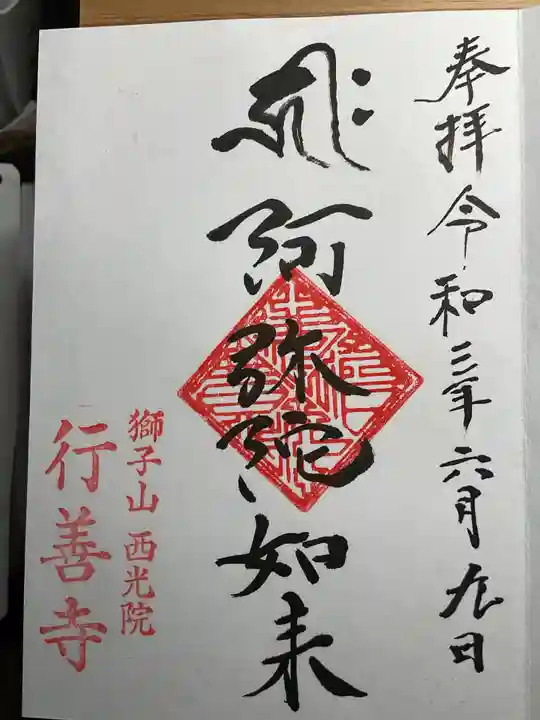 奉拝 令和三年六月九日
𑖮𑖿𑖨𑖱𑖾 阿弥陀如来
獅子山 西光院
行善寺